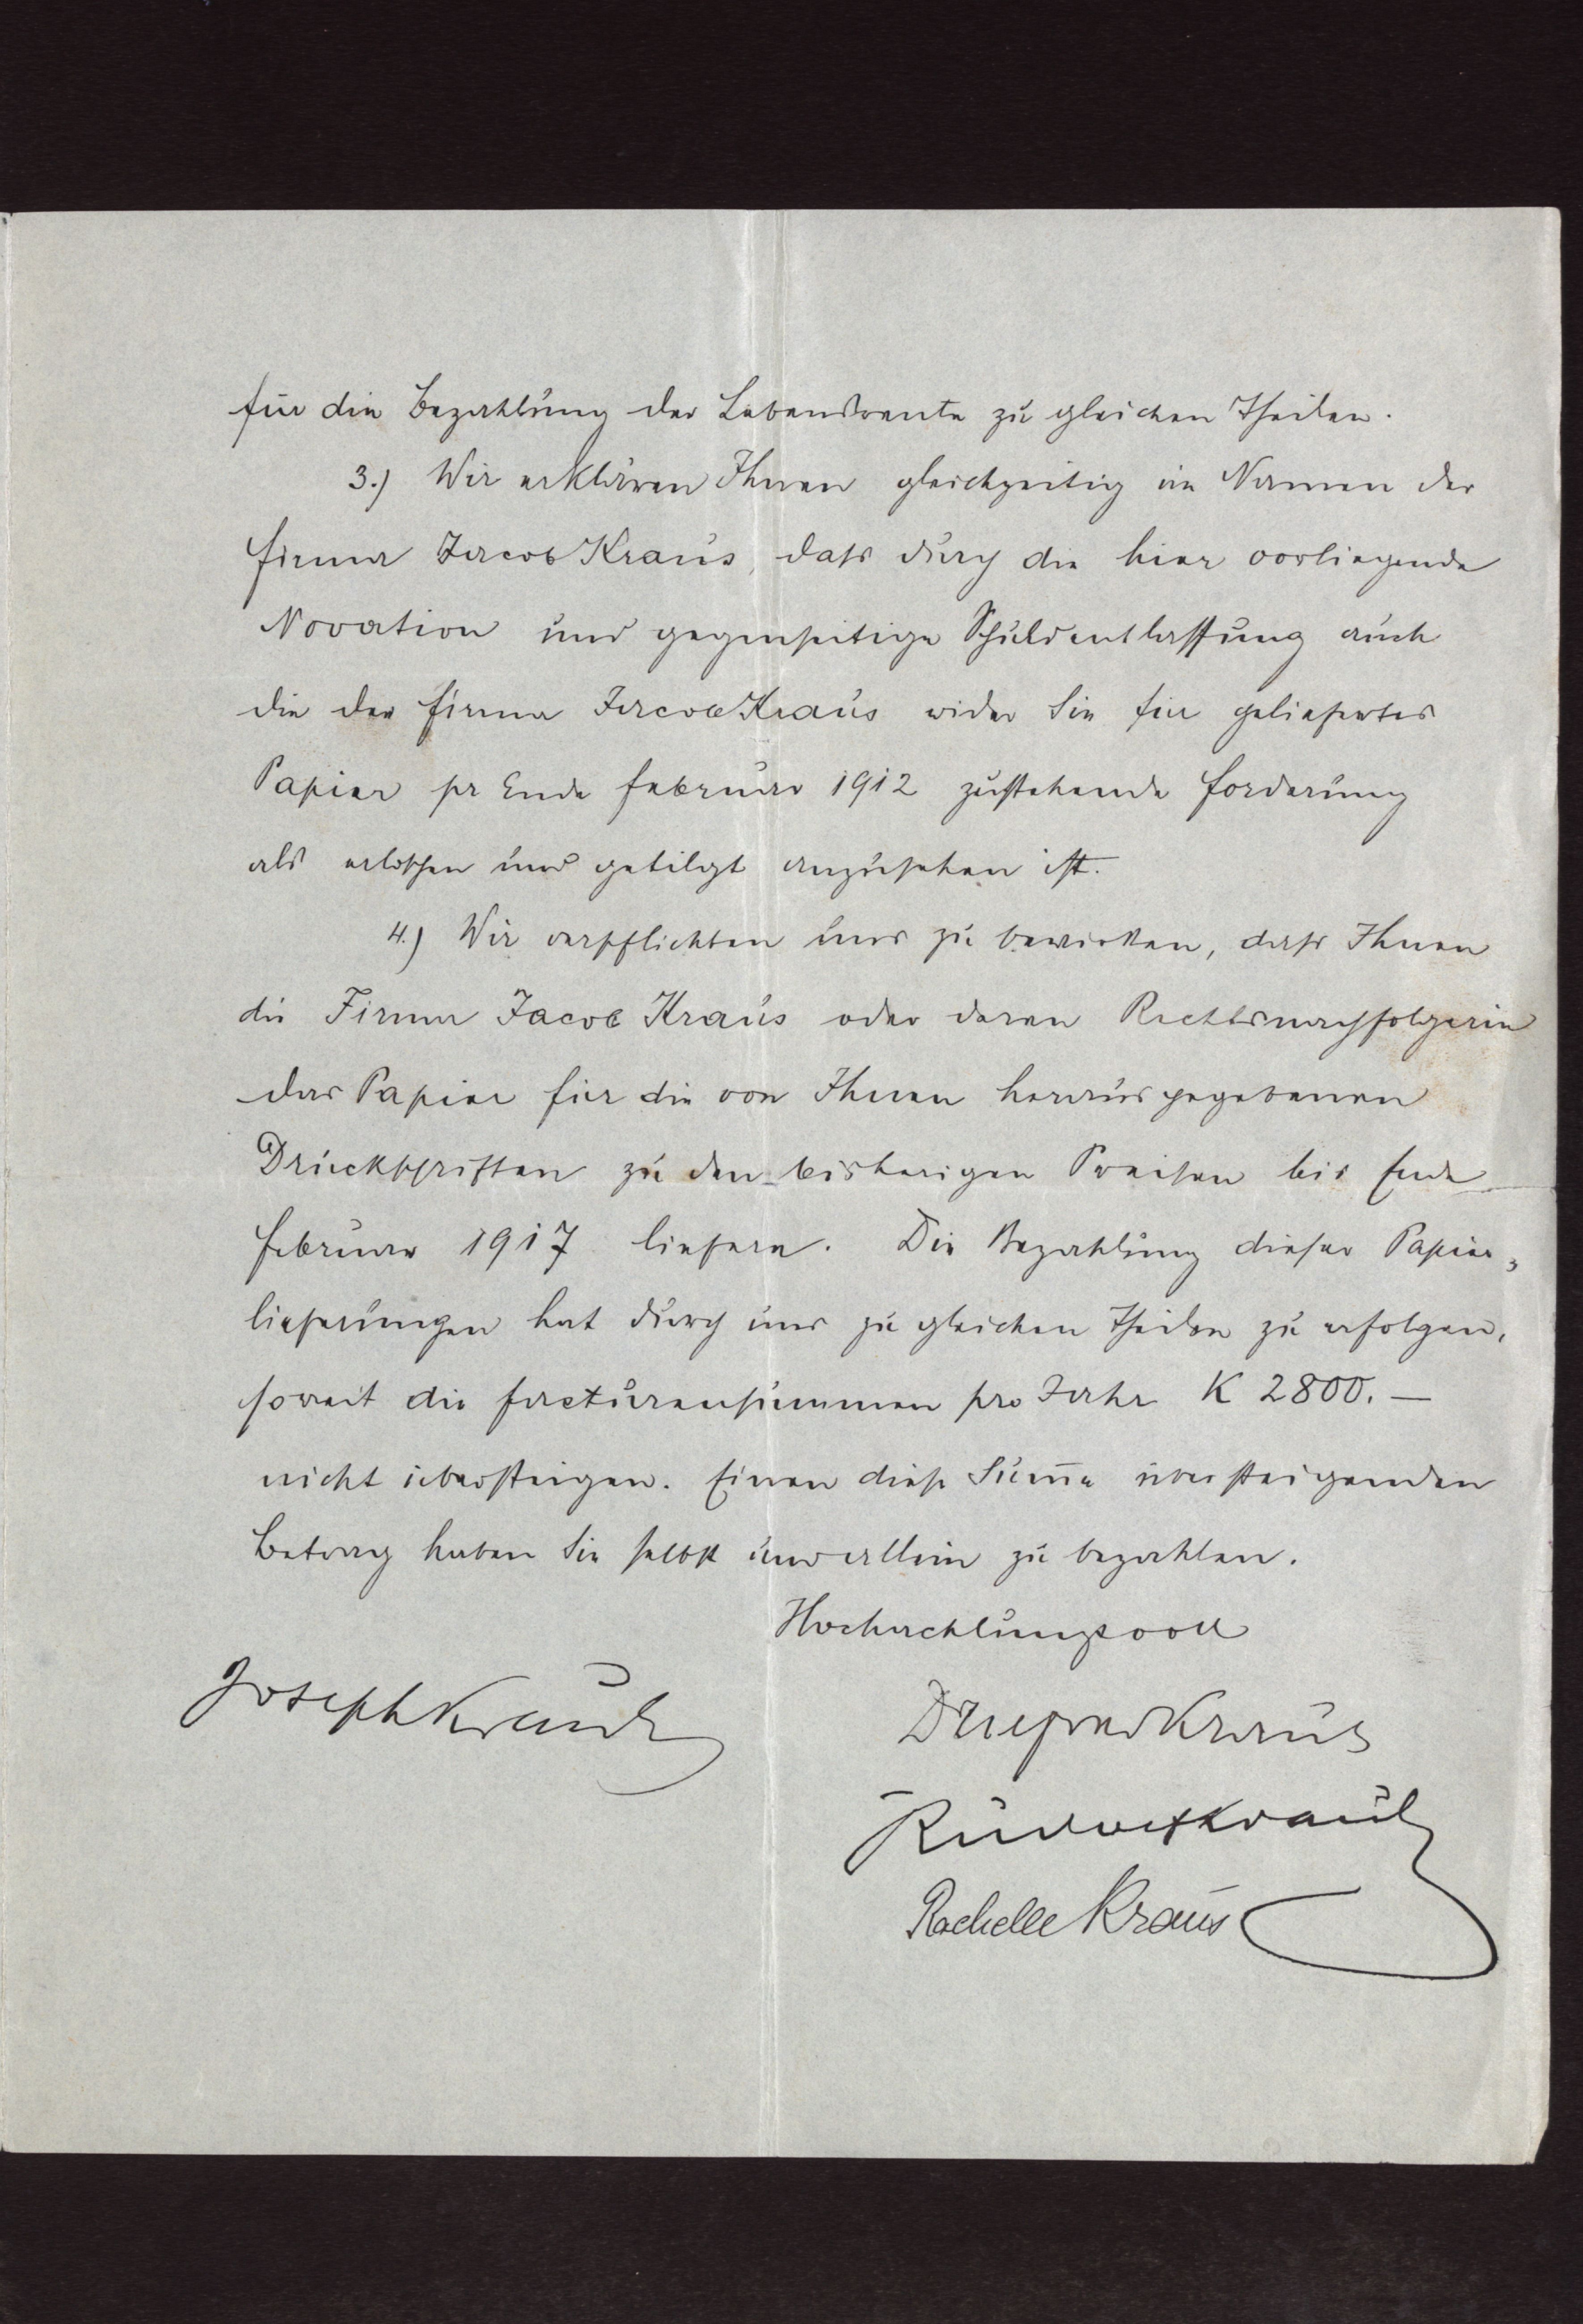 für die Bezahlung der Lebensrente zu gleichen Theilen.
3.) Wir erklären Ihnen gleichzeitig im Namen der
Firma Jacob Kraus, dass durch die hier vorliegende
Novation und gegenseitige Schuldentlassung auch
die der Firma Jacob Kraus wider Sie für geliefertes
Papier pr Ende Februar 1912 zustehende Forderung
als erloschen und getilgt anzusehen ist.
4.) Wir verpflichten uns zu bewirken, dass Ihnen
die Firma Jacob Kraus oder deren Rechtsnachfolgerin
das Papier für die von Ihnen herausgegebenen
Druckschriften zu den bisherigen Preisen bis Ende
Februar 1917 liefern. Die Bezahlung dieser Papier-
lieferungen hat durch uns zu gleichen Theilen zu erfolgen,
soweit die Facturensummen pro Jahr K 2800.—
nicht übersteigen. Einen diese Sum̄e übersteigenden
Betrag haben Sie selbst und allein zu bezahlen.
Hochachtungsvoll
Joseph Kraus
Kraus
Rudolf Kraus
Rachelle Kraus